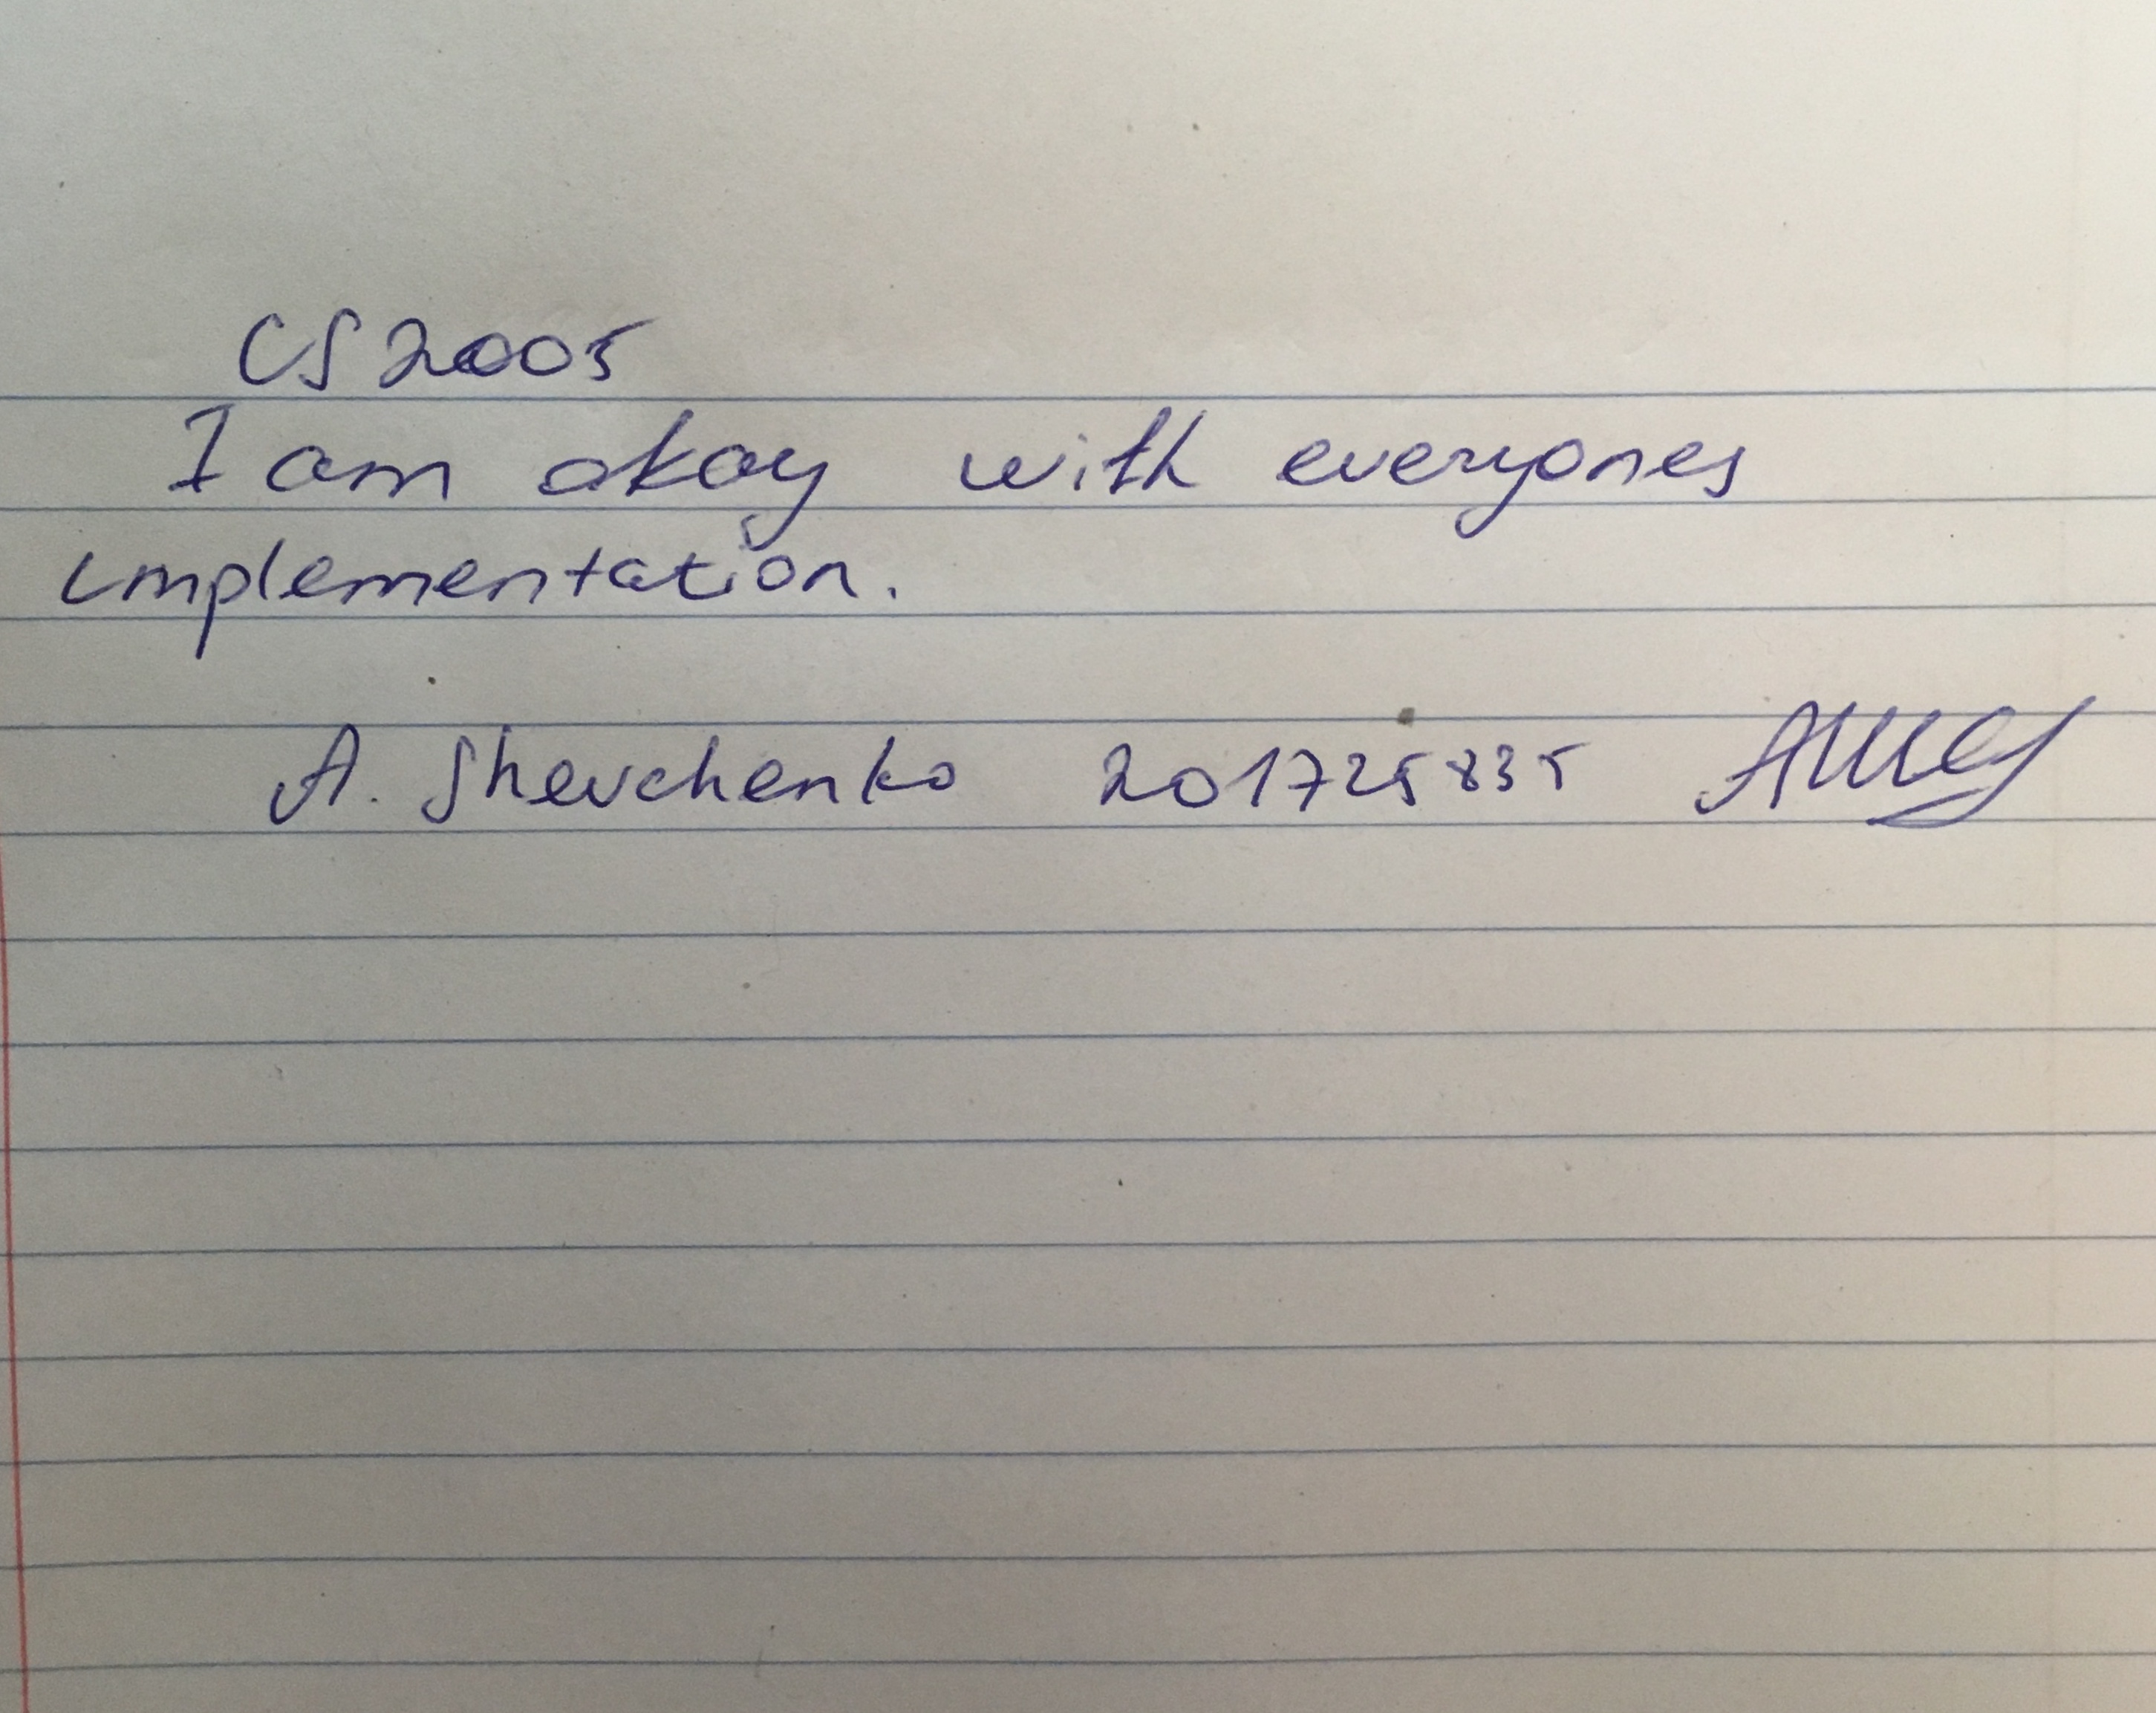 CS2005
I am okay with everyones
implementation.
A. Shevchenko 201725835